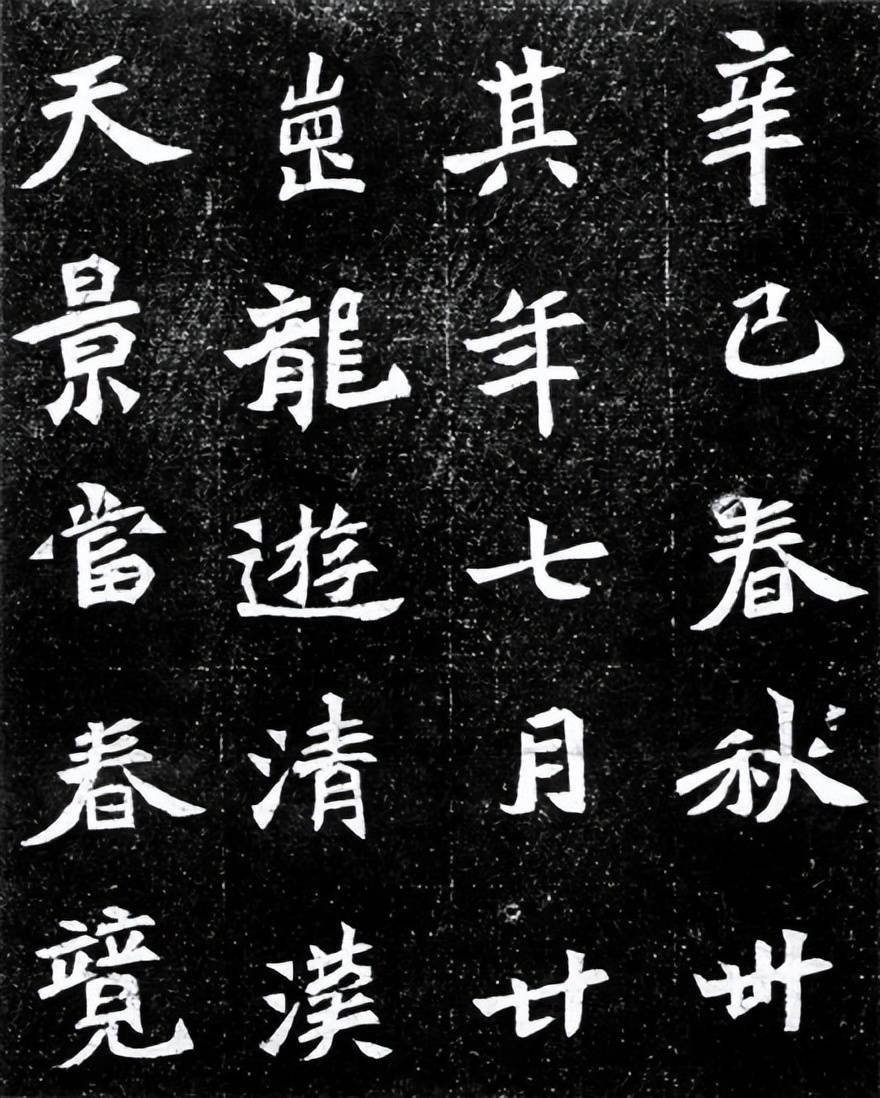 辛巳春秋卌
其年七月廿
龍遊清漢
天景當春